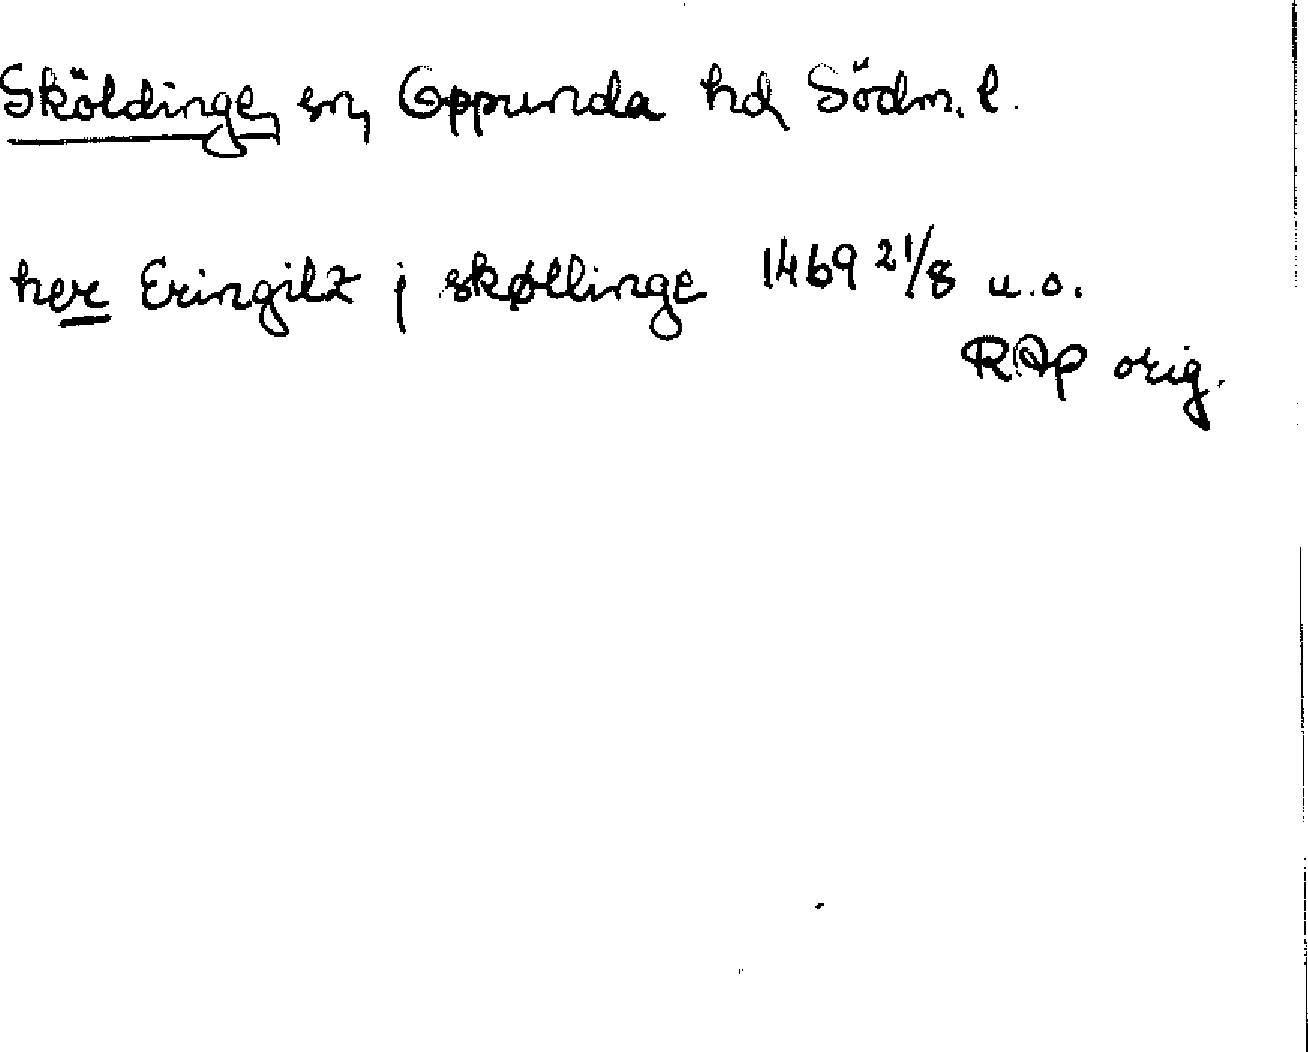 Sköldinge, sn, Oppunda hd, Södm. l.
her Eringilz j skøllinge 1469 21/8 u.o.
RAp orig.